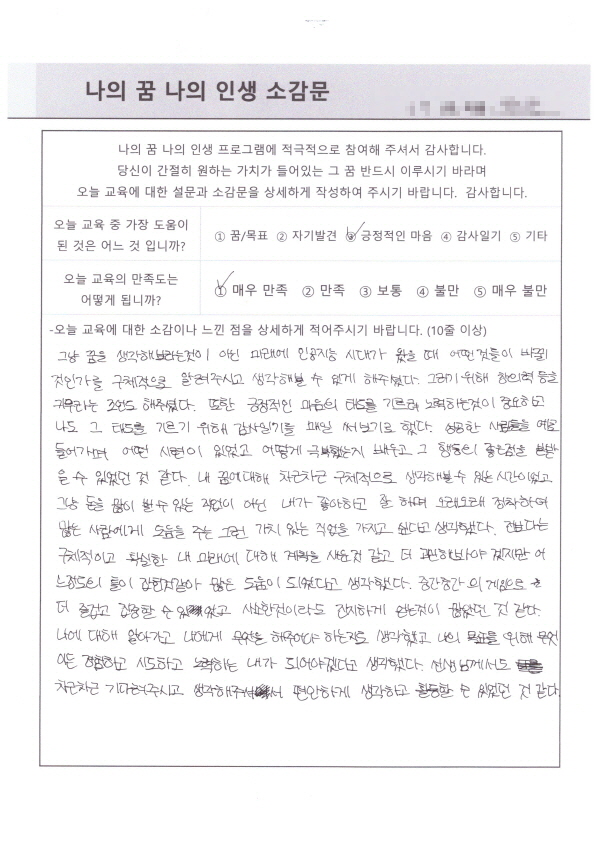 나의 꿈 나의 인생 소감문
나의 꿈 나의 인생 프로그램에 적극적으로 참여해 주셔서 감사합니다.
당신이 간절히 원하는 가치가 들어있는 그 꿈 반드시 이루시기 바라며
오늘 교육에 대한 설문과 소감문을 상세하게 작성하여 주시기 바랍니다. 감사합니다.
오늘 교육 중 가장 도움이
된 것은 어느 것 입니까?
① 꿈/목표 ② 자기발견 ③ 긍정적인 마음 ④ 감사일기 ⑤ 기타
오늘 교육의 만족도는
어떻게 됩니까?
① 매우 만족 ② 만족 ③ 보통 ④ 불만 ⑤ 매우 불만
-오늘 교육에 대한 소감이나 느낀 점을 상세하게 적어주시기 바랍니다. (10줄 이상)
그냥 꿈을 생각해보라는것이 아닌 미래에 인공지능 시대가 왔을 때 어떤것들이 바뀔
것인가를 구체적으로 알려주시고 생각해볼 수 있게 해주셨다. 그러기 위해 창의력 등을
키우라는 조언도 해주셨다. 또한 긍정적인 마음의 태도를 기르려 노력하는것이 중요하고
나도 그 태도를 기르기 위해 감사일기를 매일 써보기로 했다. 성공한 사람들을 예로
들어가며 어떤 시련이 있었고 어떻게 극복했는지 배우고 그 행동의 좋은점을 본받
을 수 있었던 것 같다. 내 꿈에 대해 차근차근 구체적으로 생각해볼 수 있는 시간이었고
그냥 돈을 많이 벌 수 있는 직업이 아닌 내가 좋아하고 잘 하며 오래오래 정착하여
많은 사람에게 도움을 주는 그런 가치 있는 직업을 가지고 싶다고 생각했다. 전보다는
구체적이고 확실한 내 미래에 대해 계획을 세운것 같고 더 고민해봐야 겠지만 어
느정도의 틀이 잡힌것같아 많은 도움이 되었다고 생각했다. 중간중간의 게임으로
더 즐겁고 집중할 수 있었고 사소한것이라도 진지하게 얻는것이 많았던 것 같다.
나에 대해 알아가고 나에게 무엇을 해주어야 하는지도 생각했고 나의 목표를 위해 무엇
이든 경험하고 시도하고 노력하는 내가 되어야겠다고 생각했다. 선생님께서도
차근차근 기다려주시고 생각해주셔서 편안하게 생각하고 활동할 수 있었던 것 같다.